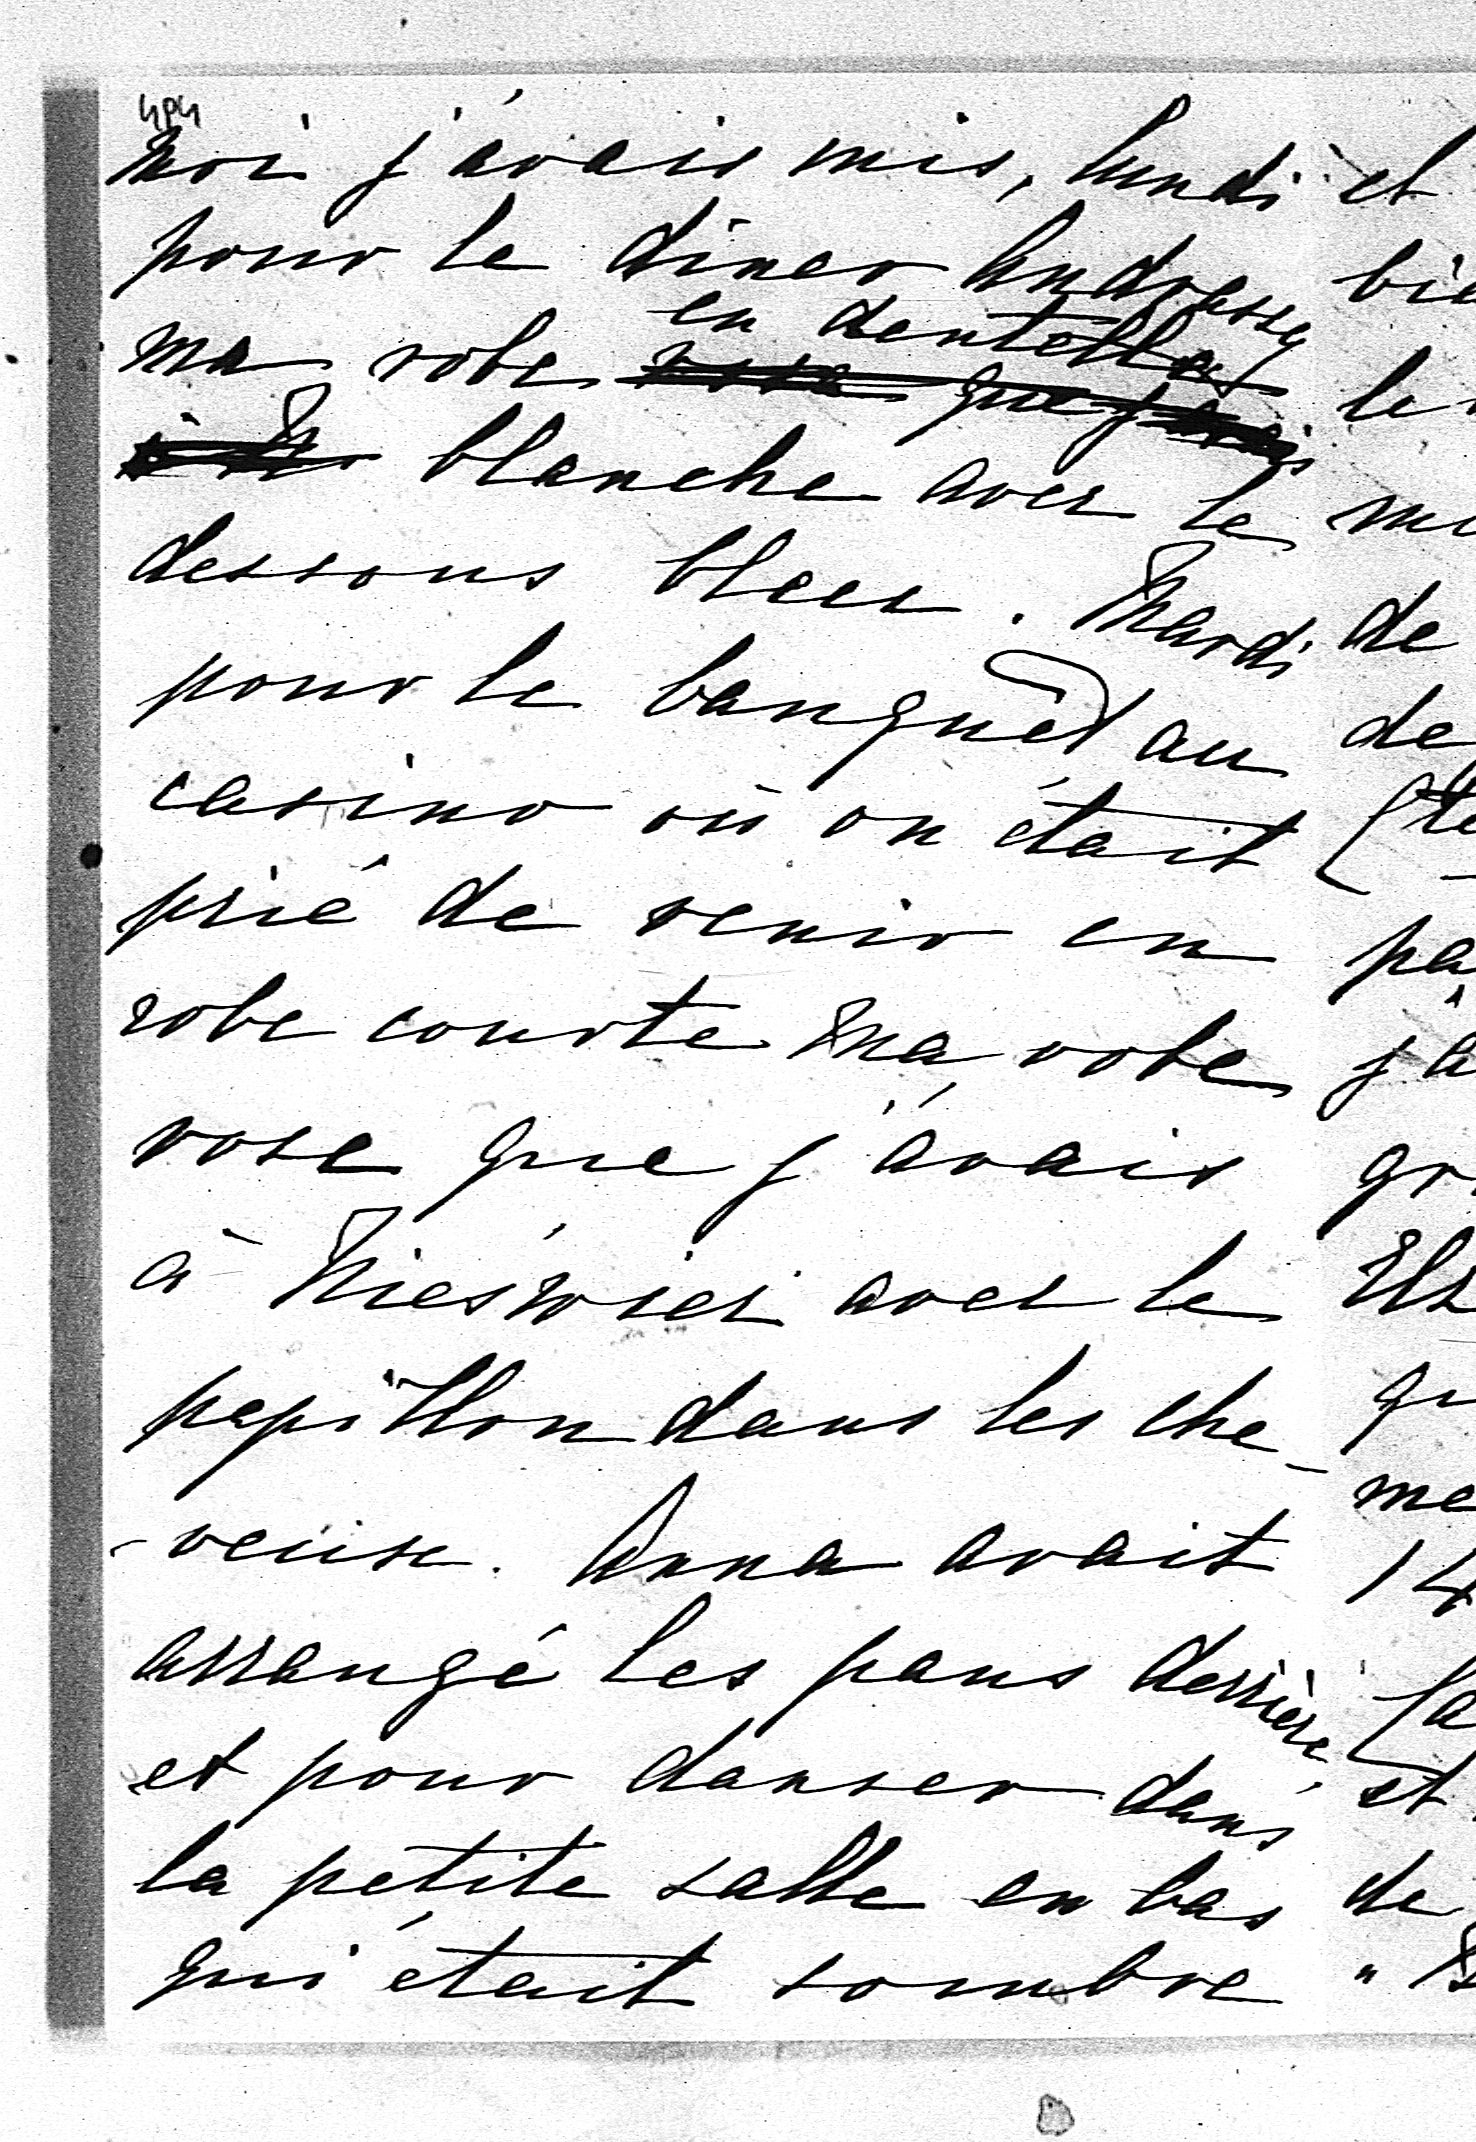 moi j'avais mis, lundi
pour le dîner Andrassy
en dentelles
ma robe rose que j'avais
à N blanche avec le
dessous bleu. Mardi
pour le banquêt au
casino où on était
prié de venir en
robe courte ma robe
rose que j'avais
à Nieswiei avec le
papillon dans les che-
-veux. Anna avait
arrangé les pans derrière,
et pour danser dans
la petite salle en bas
qui était sombre
et
de
de
pa
Ils
me
14
et
de